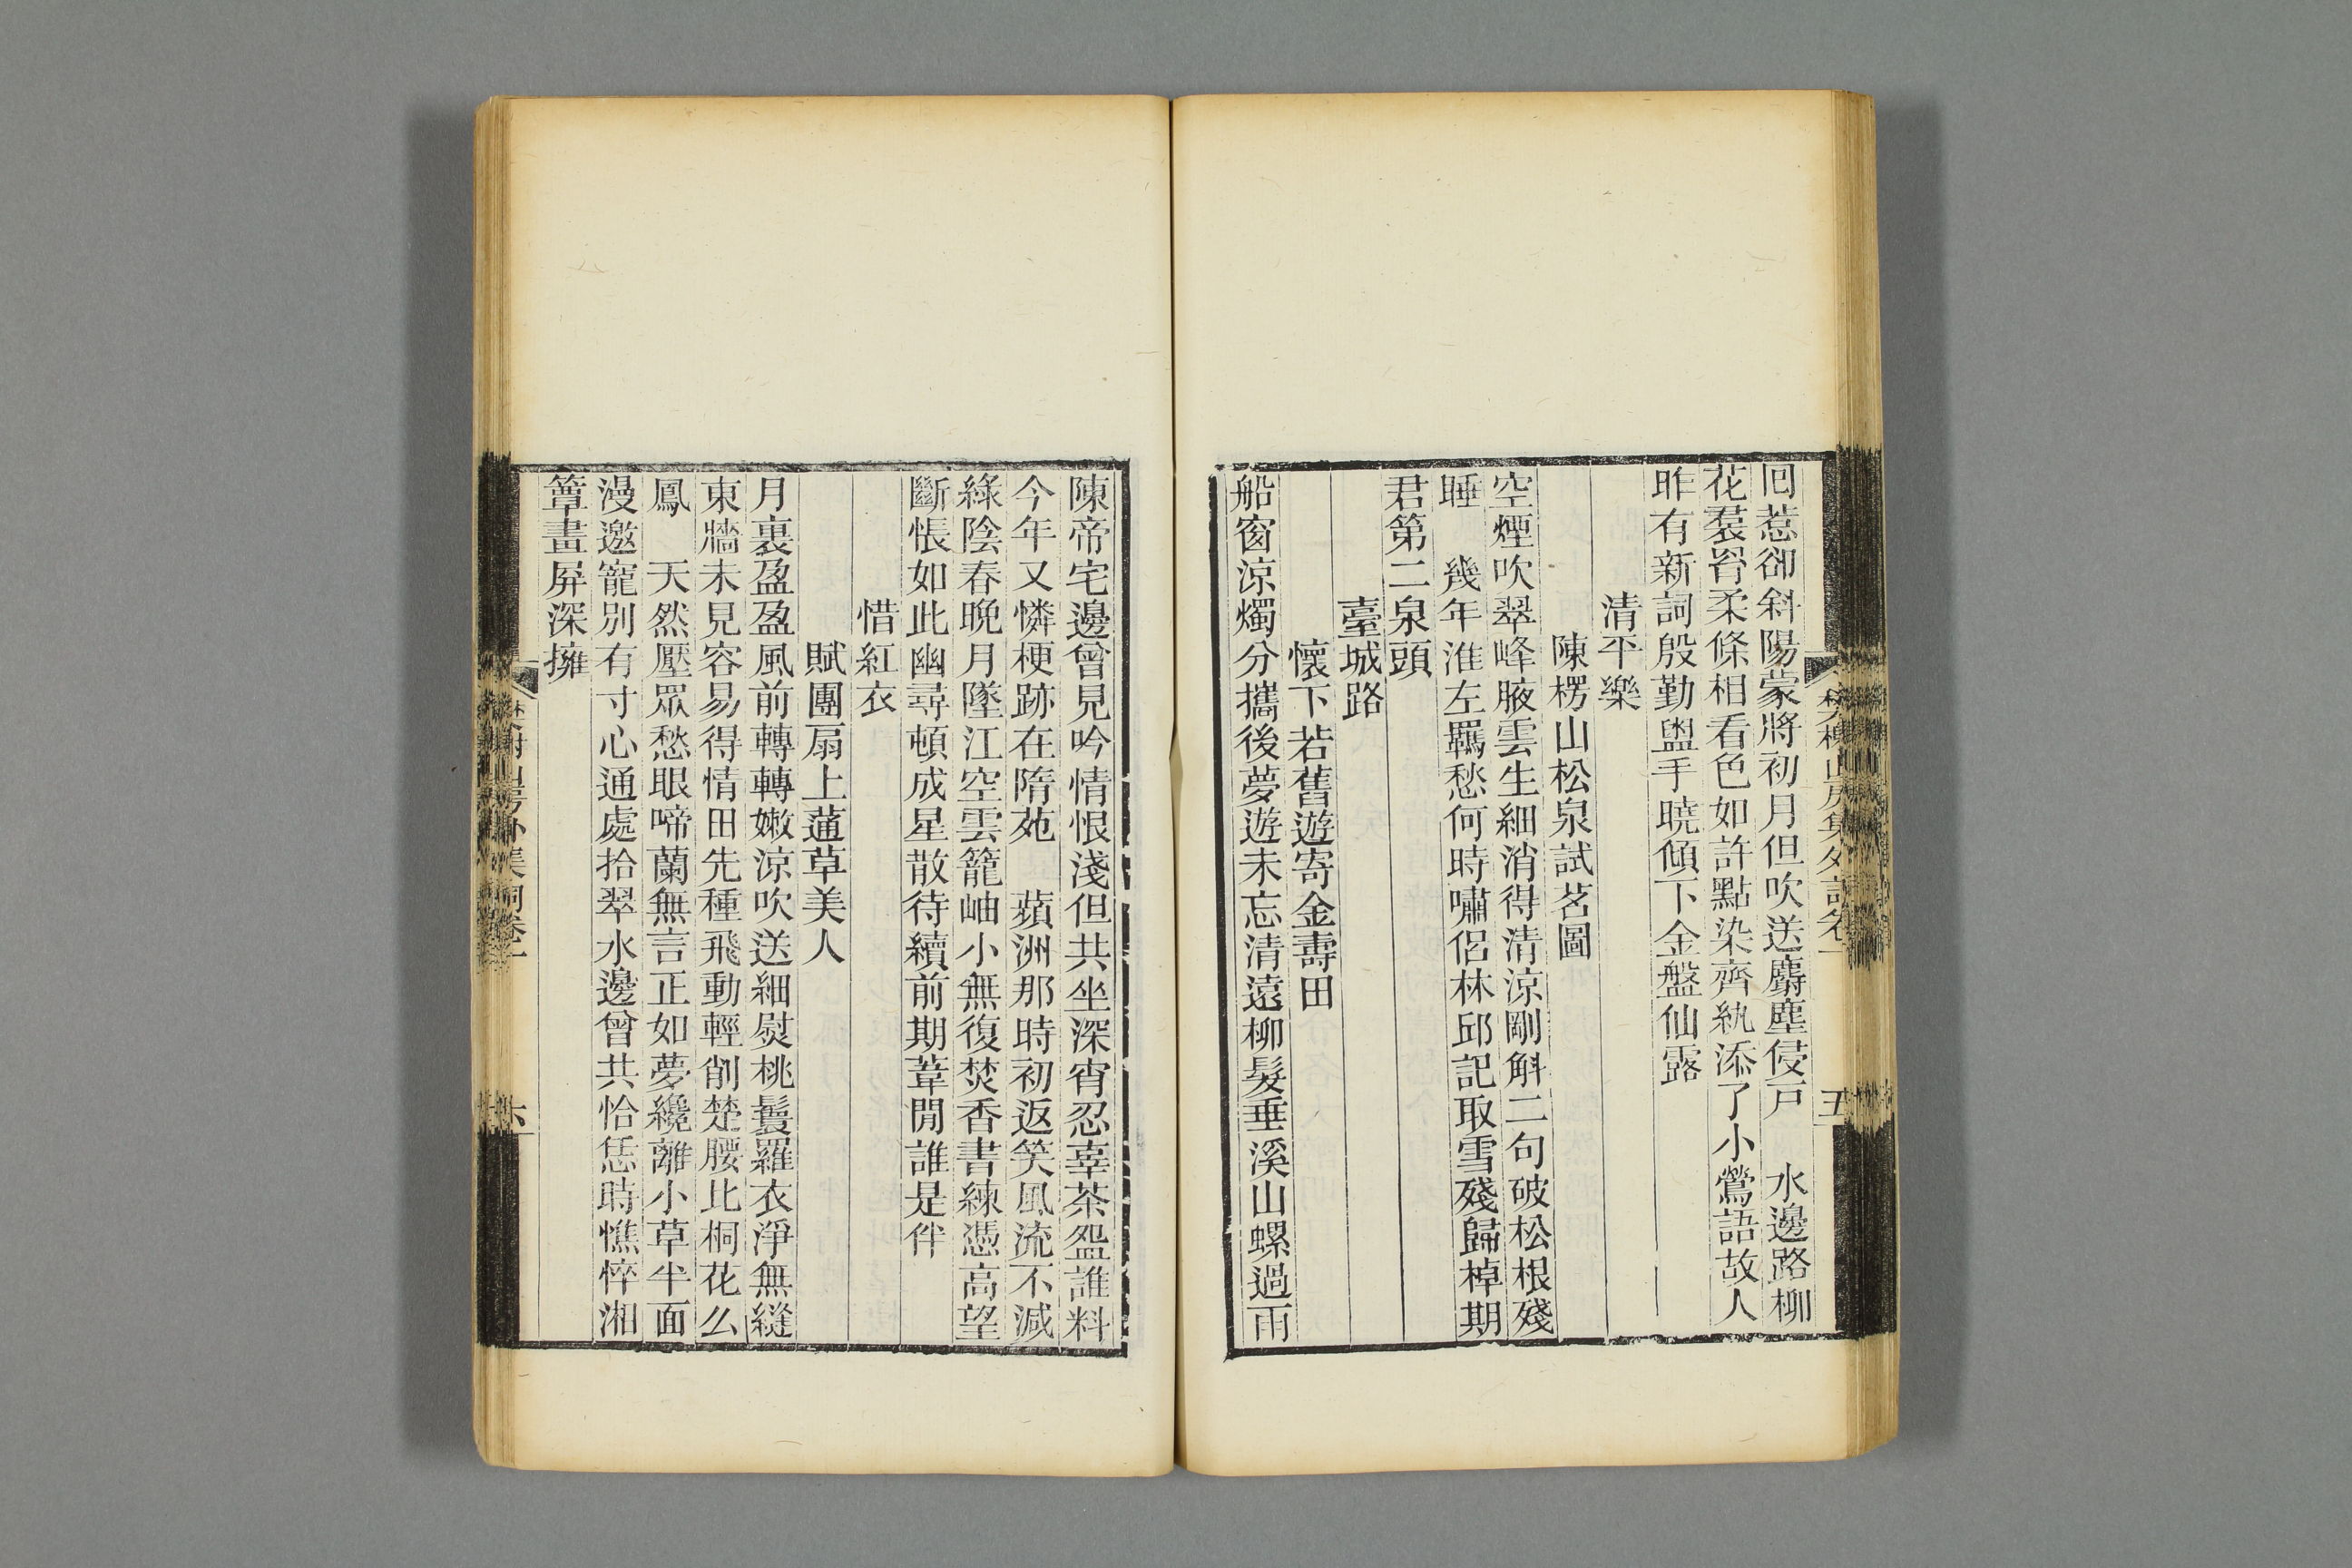 回惹卻斜陽蒙將初月但吹送麝塵侵戸　水邊路柳
花裠罥柔條相看色如許點染齊紈添了小鶯語故人
昨有新詞殷勤盥手曉傾下金盤仙露
清平樂
陳楞山松泉試茗圖
空煙吹翠峰腋雲生細消得清涼剛斛二句破松根殘
睡　幾年淮左羈愁何時嘯侶林邱記取雪殘歸棹期
君第二泉頭
臺城路
懷下若舊遊寄金壽田
船窗涼燭分攜後夢遊未忘清遠柳髮垂溪山螺過雨
五
陳帝宅邊曾見吟情恨淺但共坐深宵忍辜茶盌誰料
今年又憐梗跡在隋苑　蘋洲那時初返笑風流不減
綠陰春晚月墜江空雲籠岫小無復焚香書練憑高望
斷悵如此幽尋頓成星散待續前期葦閒誰是伴
惜紅衣
賦團扇上蓪草美人
月裏盈盈風前轉轉嫩涼吹送細熨桃鬟羅衣淨無縫
東牆未見容易得情田先種飛動輕削楚腰比桐花么
鳳　天然壓眾愁眼啼蘭無言正如夢纔離小草半面
漫邀寵別有寸心通處拾翠水邊曾共恰恁時憔悴湘
簟畫屏深擁
六